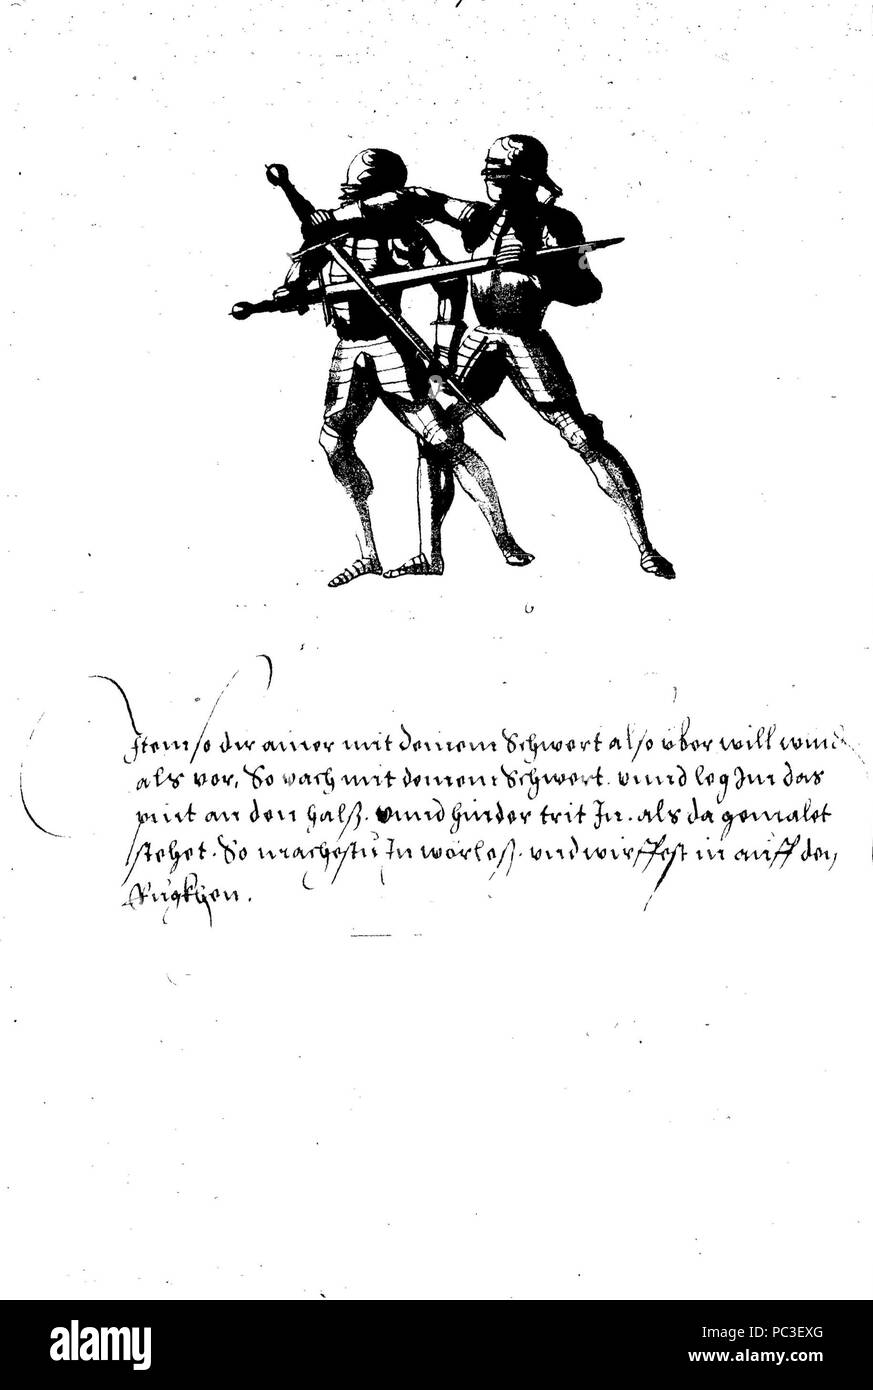 Item so dir ainer mit deinem Schwert also vber will wind
als vor, So vach mit deinem Schwert. vnnd leg Im das
pint an den halß. vnnd hinder trit In. als da gemalet
stehet. So machestu In wörloß. vnd wirffest in auff den
Rugkhen.
a
a
alamy
Image ID: PC3EXG
www.alamy.com